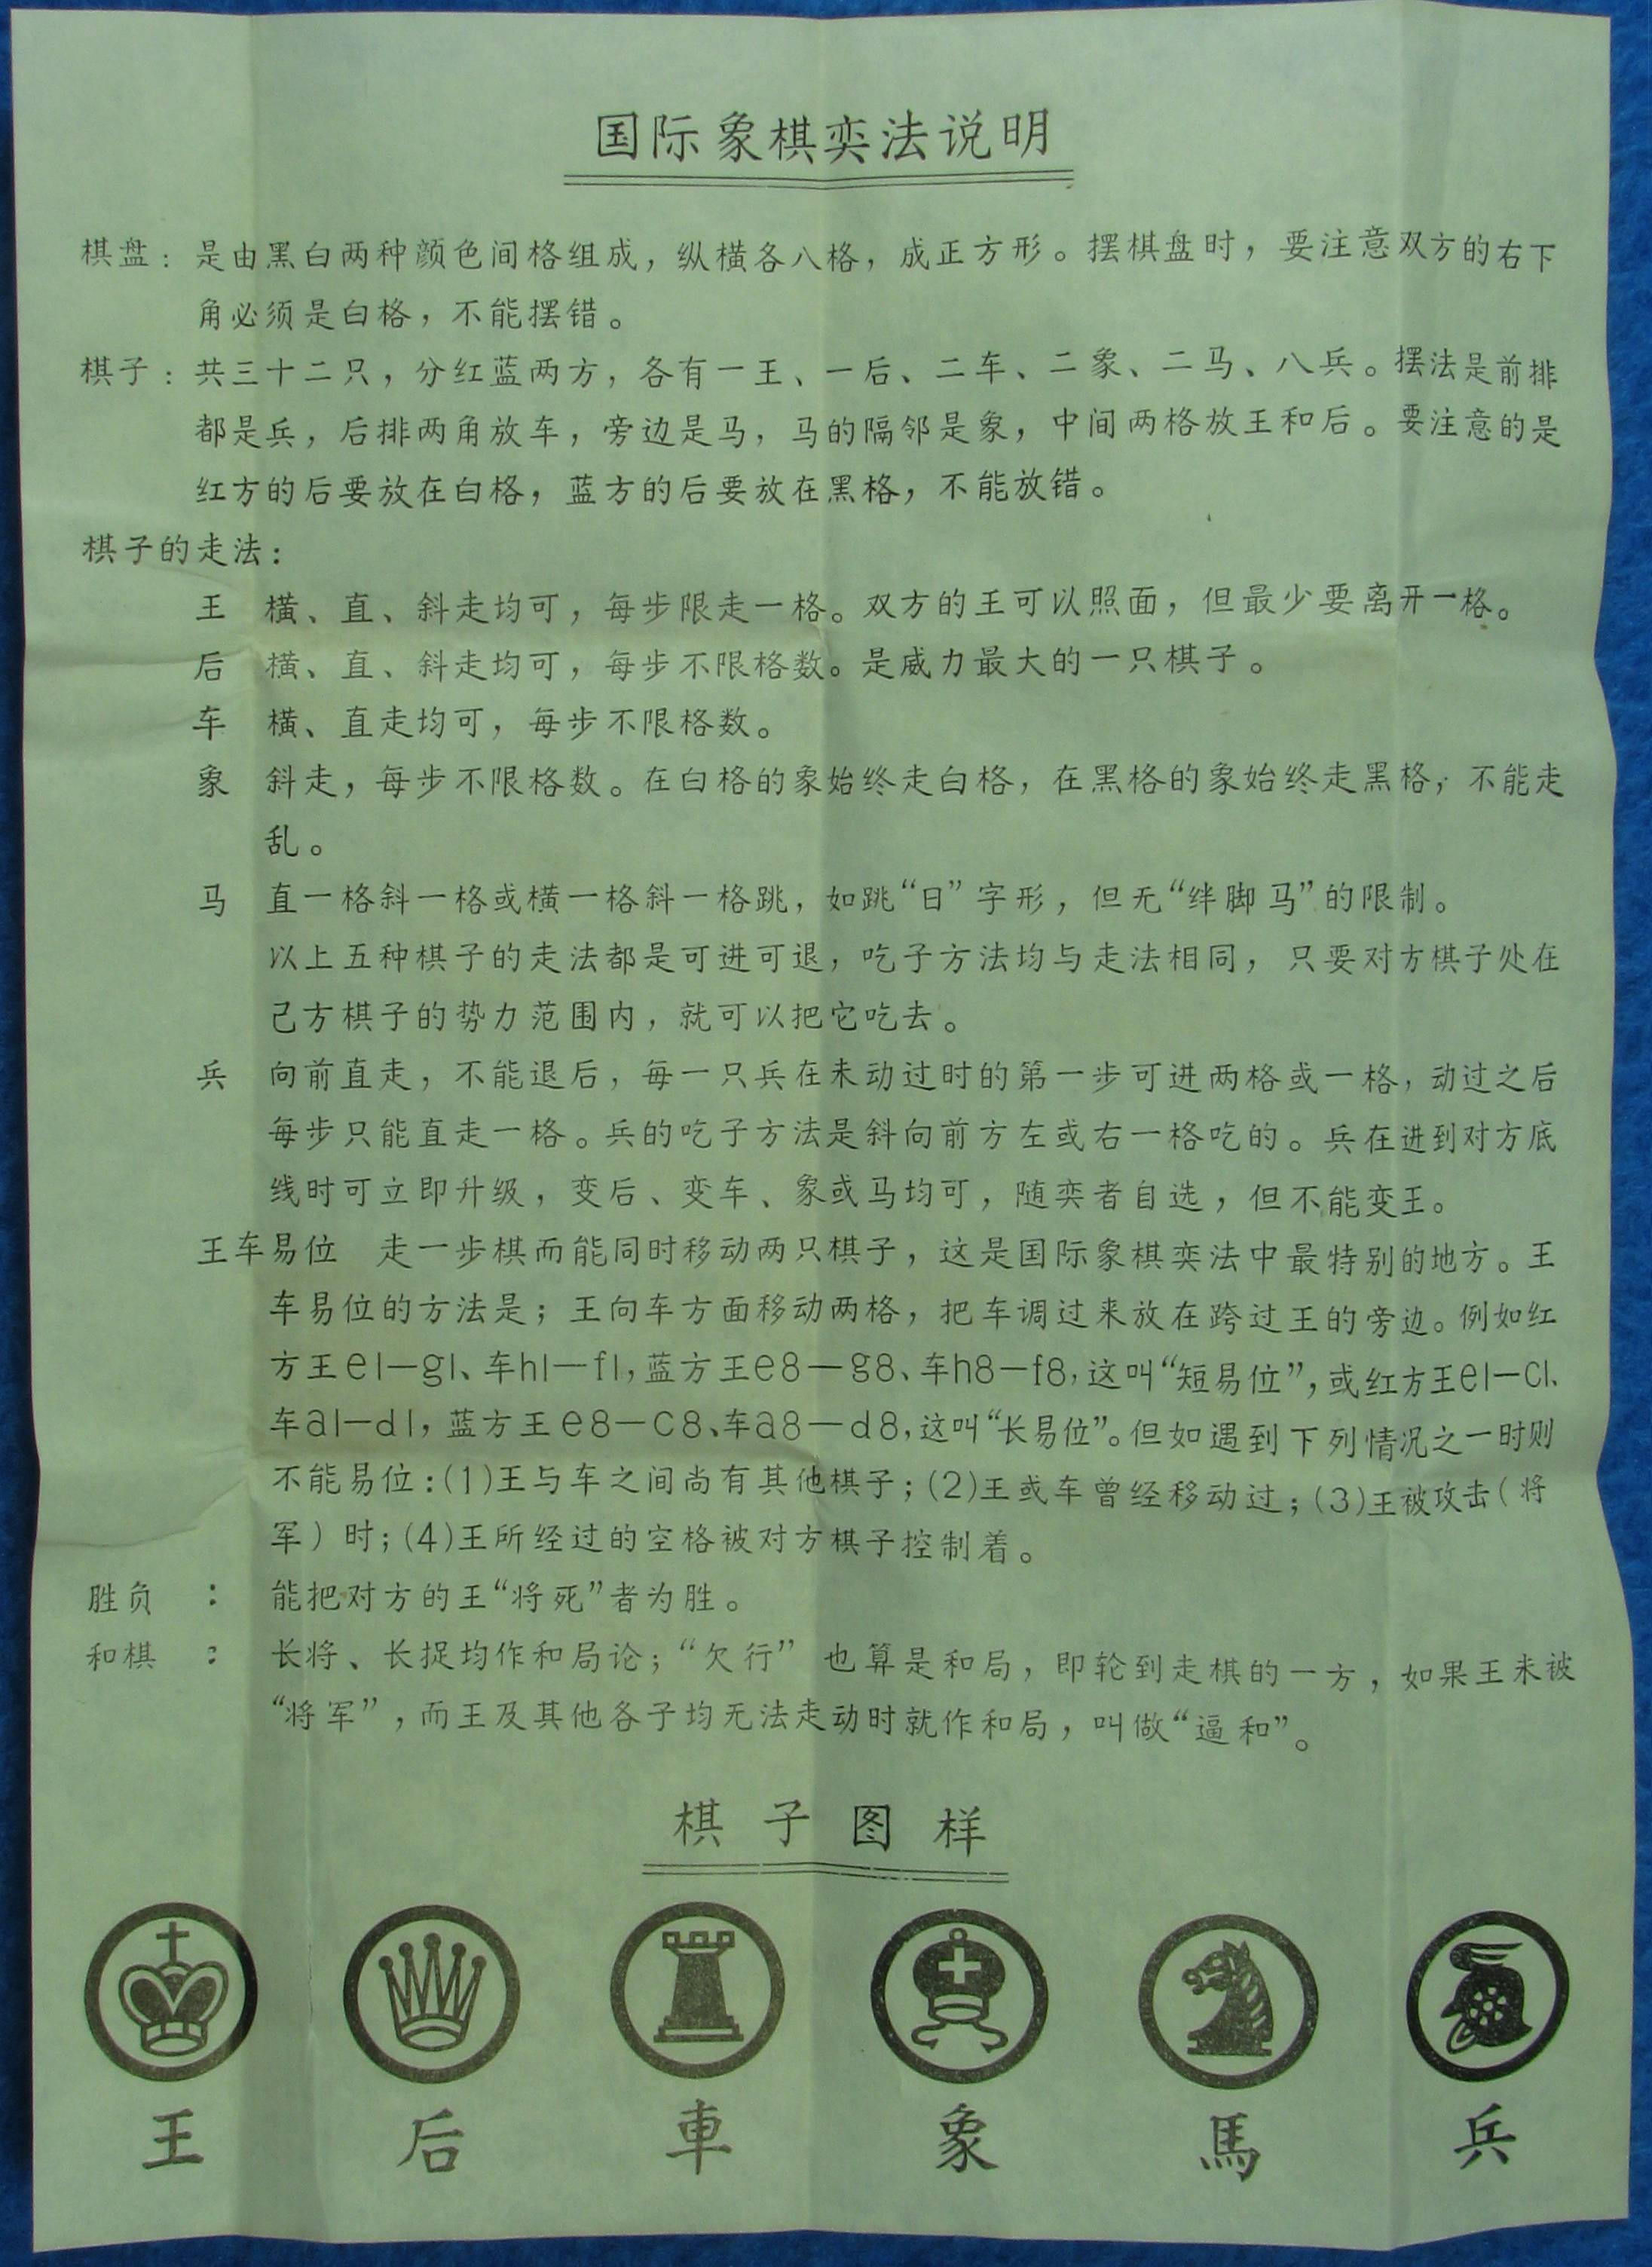 国际象棋奕法说明
棋盘：是由黑白两种颜色间格组成，纵横各八格，成正方形。摆棋盘时，要注意双方的右下
角必须是白格，不能摆错。
棋子：共三十二只，分红蓝两方，各有一王、一后、二车、二象、二马、八兵。摆法是前排
都是兵，后排两角放车，旁边是马，马的隔邻是象，中间两格放王和后。要注意的是
红方的后要放在白格，蓝方的后要放在黑格，不能放错。
棋子的走法：
王 横、直、斜走均可，每步限走一格。双方的王可以照面，但最少要离开一格。
后 横、直、斜走均可，每步不限格数。是威力最大的一只棋子。
车 横、直走均可，每步不限格数。
象 斜走，每步不限格数。在白格的象始终走白格，在黑格的象始终走黑格，不能走
乱。
马 直一格斜一格或横一格斜一格跳，如跳“日”字形，但无“绊脚马”的限制。
以上五种棋子的走法都是可进可退，吃子方法均与走法相同，只要对方棋子处在
己方棋子的势力范围内，就可以把它吃去。
兵 向前直走，不能退后，每一只兵在未动过时的第一步可进两格或一格，动过之后
每步只能直走一格。兵的吃子方法是斜向前方左或右一格吃的。兵在进到对方底
线时可立即升级，变后、变车、象或马均可，随奕者自选，但不能变王。
王车易位 走一步棋而能同时移动两只棋子，这是国际象棋奕法中最特别的地方。王
车易位的方法是；王向车方面移动两格，把车调过来放在跨过王的旁边。例如红
方王e1—g1、车h1—f1，蓝方王e8—g8、车h8—f8，这叫“短易位”，或红方王e1—C1、
车a1—d1，蓝方王e8—c8、车a8—d8，这叫“长易位”。但如遇到下列情况之一时则
不能易位：(1)王与车之间尚有其他棋子；(2)王或车曾经移动过；(3)王被攻击（将
军）时；(4)王所经过的空格被对方棋子控制着。
胜负：能把对方的王“将死”者为胜。
和棋：长将、长捉均作和局论；“欠行”也算是和局，即轮到走棋的一方，如果王未被
“将军”，而王及其他各子均无法走动时就作和局，叫做“逼和”。
棋子图样
王 后 車 象 馬 兵